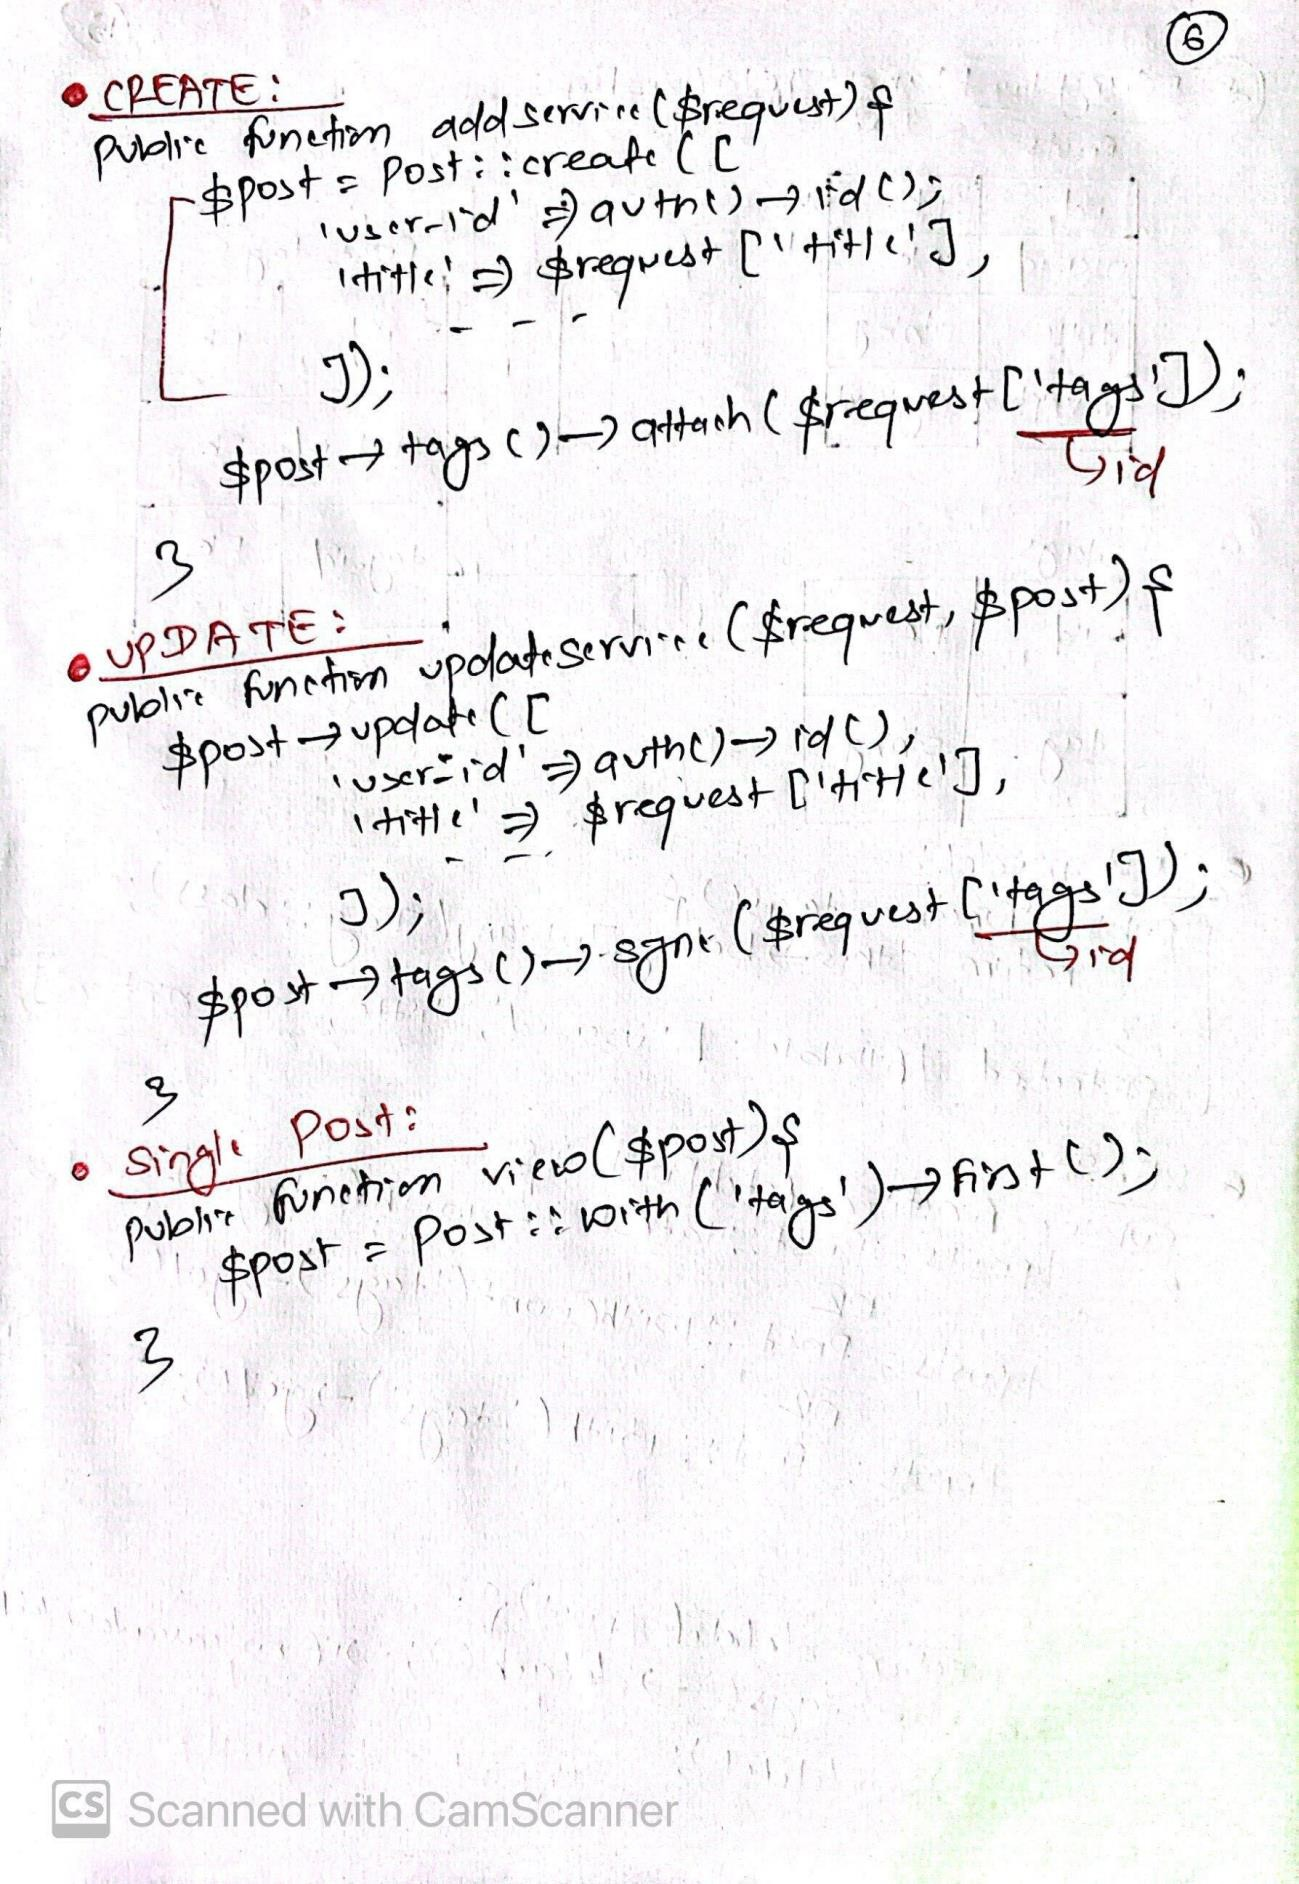 6
• CREATE:
public function addservice($request){
$post = Post::create([
'user_id' => auth()→id();
'title' => $request['title'],
- - -
]);
$post→tags()→attach($request['tags']);
↳id
}
• UPDATE:
public function updateservice($request, $post){
$post→update([
'user_id' => auth()→id(),
'title' => $request['title'],
- - -
]);
$post→tags()→sync($request['tags']);
↳id
}
• Single Post:
public function view($post){
$post = Post::with('tags')→first();
}
CS Scanned with CamScanner